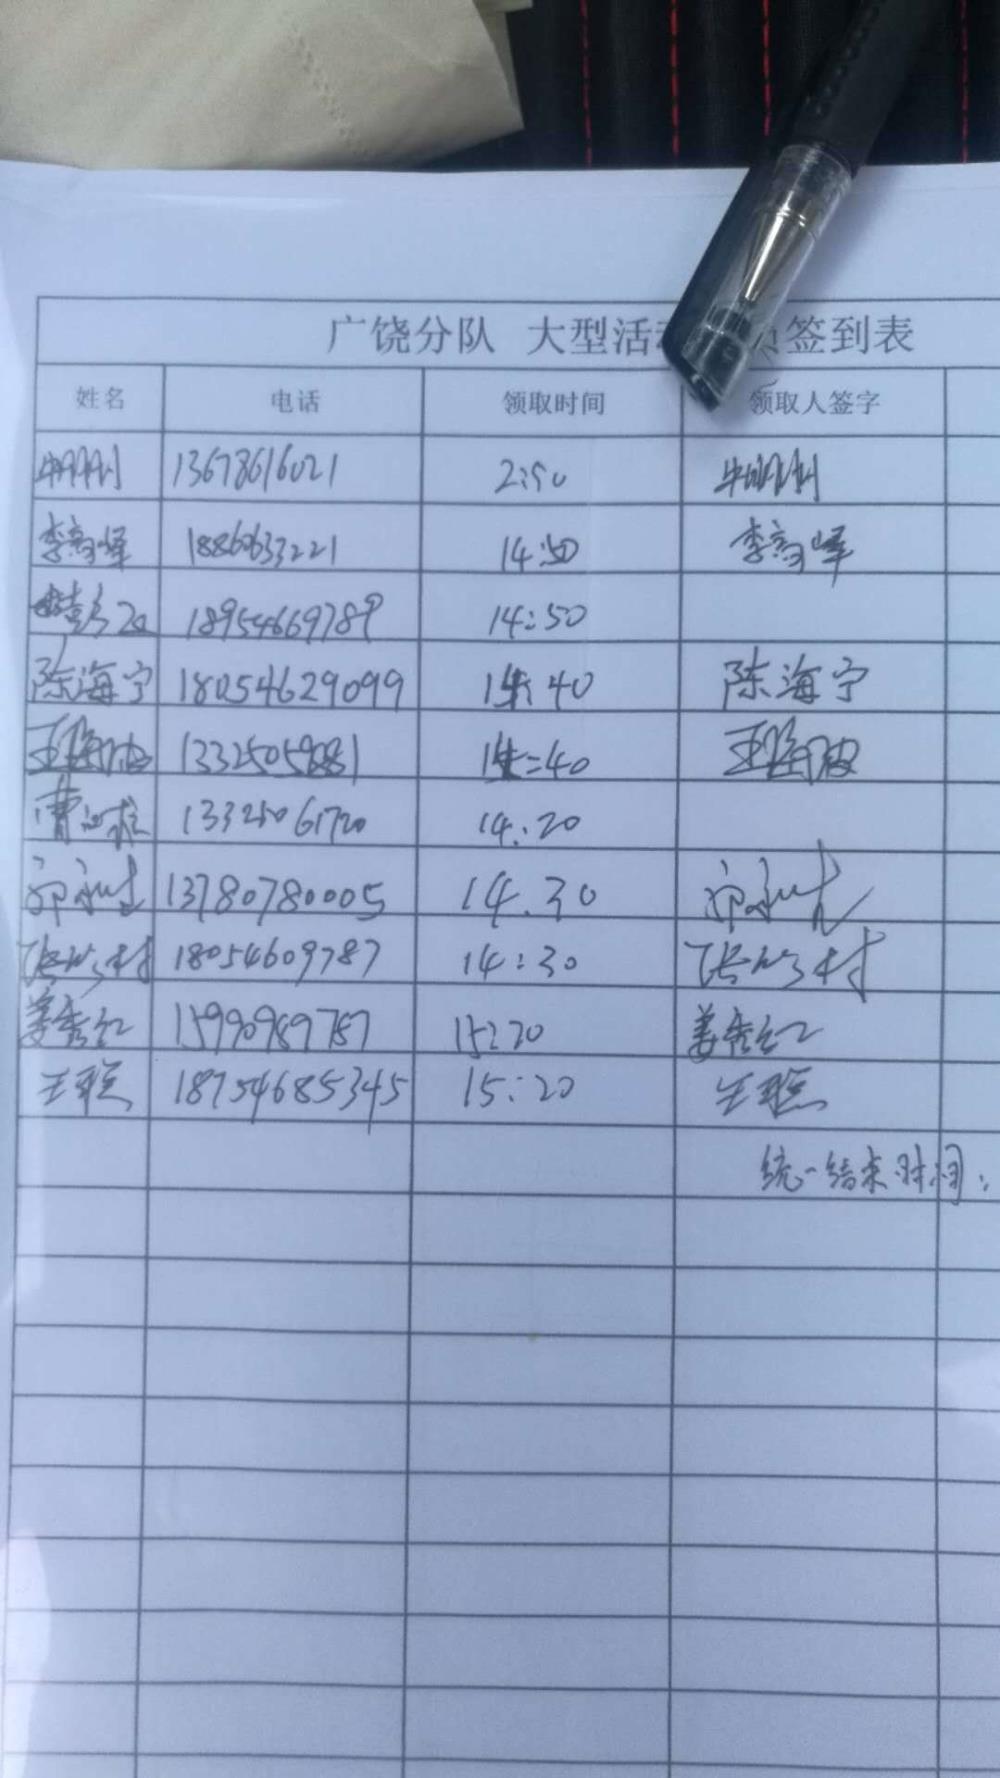 广饶分队 大型活 员签到表
姓名 电话 领取时间 领取人签字
13678616021 2:50
李高峰 18860633221 14:50 李高峰
18954669789 14:50
陈海宁 18054629099 14:40 陈海宁
王海波 13325059881 14:40 王海波
曹 13325061720 14:20
13780780005 14.30
张 村 18054609787 14:30 张 村
姜秀红 15990989787 15:20 姜秀红
王聪 18754685345 15:20 王聪
统一结束时间: